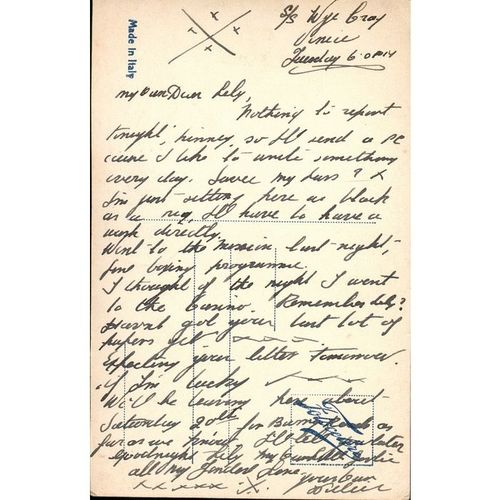 Made in Italy
S/S Wye Cray
Venice
Tuesday 6.0 P.M
my own Dear Lely,
Nothing to report
tonight, hinney, so I'll send a PC
cause I like to write something
every day. Savee my duss? X
I'm just sitting here as black
as a nig, I'll have to have a
wash directly.
Went to the mission last night,
fine boxing programme.
I thought of the night I went
to the Casino. Remember Lely?
Havent got your last lot of
papers yet
Expecting your letter tomorrow.
if I'm lucky
We'll be leaving here about
Saturday 20th for Bona
far as we know. I'll let you later
Goodnight Lely my
all my fondest Love
your own
x x x x x